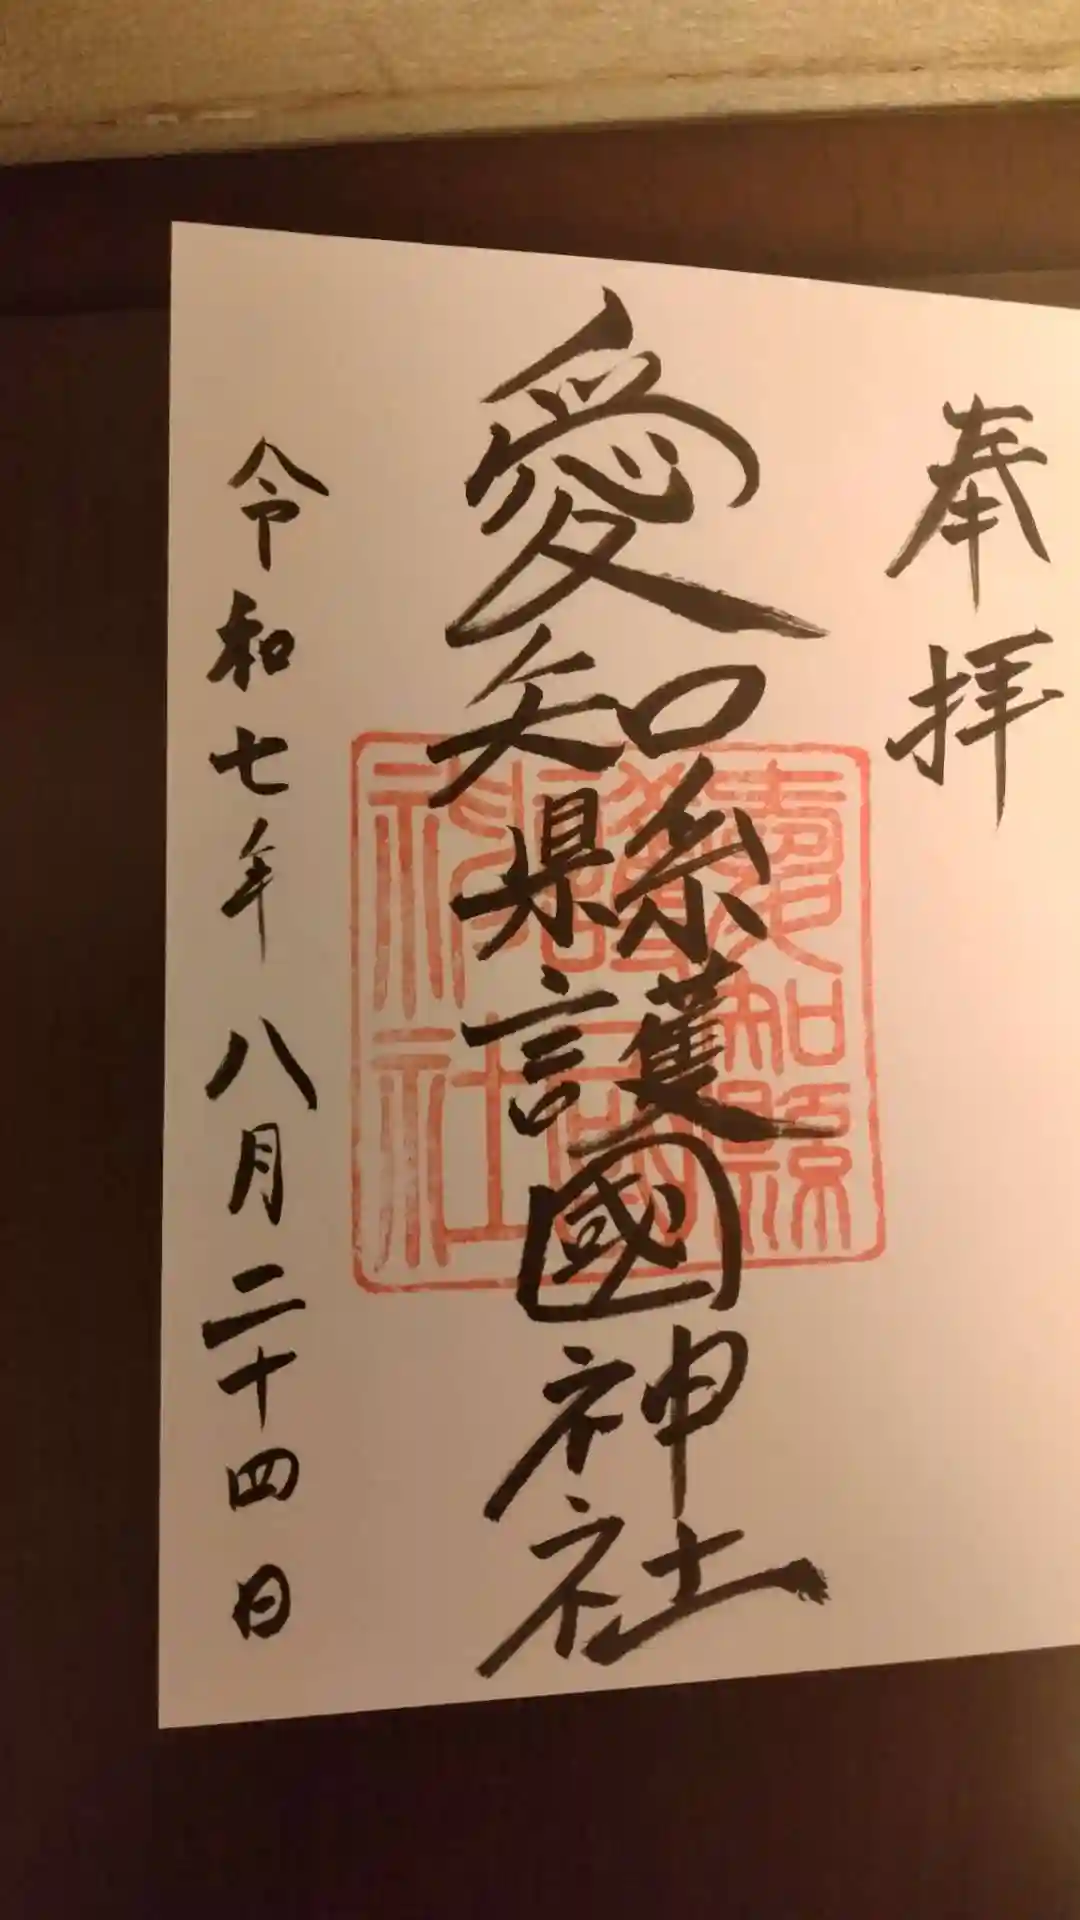 奉拝
愛知縣護國神社
愛知縣護國神社
令和七年八月二十四日